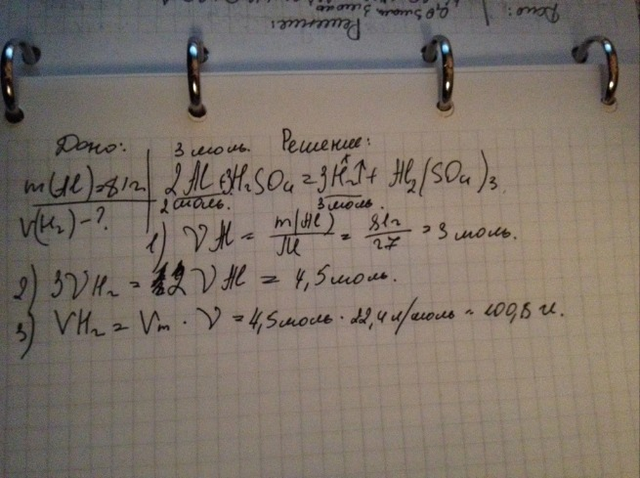 Решение:
Дано: 3 моль. Решение:
m(Al)=81г 2Al+3H₂SO₄=3H₂↑+Al₂(SO₄)₃.
V(H₂)-? 2 моль. 3 моль.
1) νAl = m(Al)/M = 81г/27 = 3 моль.
2) 3νH₂ = 2νAl = 4,5 моль.
3) VH₂ = Vm · ν = 4,5 моль · 22,4 л/моль = 100,8 л.